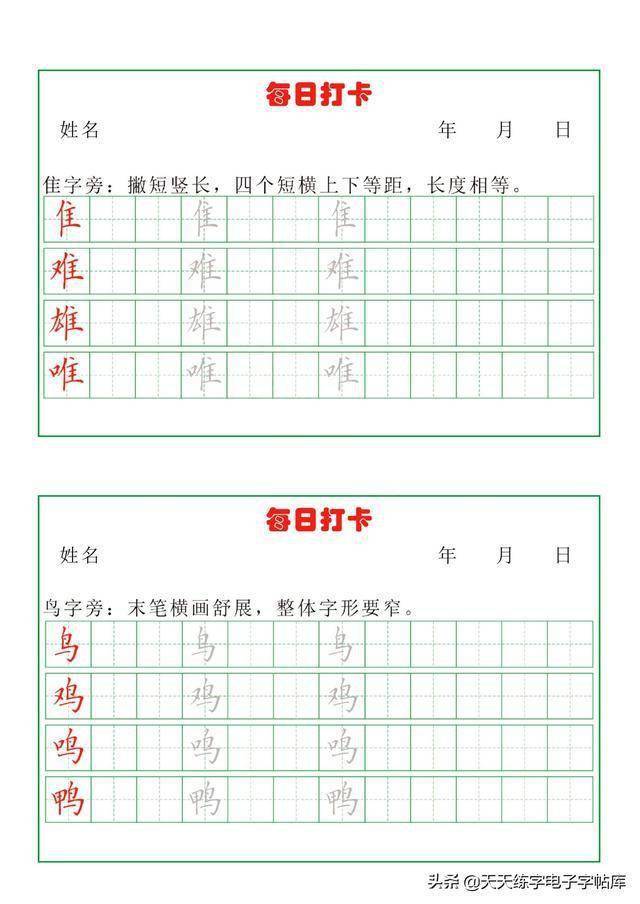 每日打卡
姓名 年 月 日
隹字旁：撇短竖长，四个短横上下等距，长度相等。
隹 隹 隹
难 难 难
雄 雄 雄
唯 唯 唯
每日打卡
姓名 年 月 日
鸟字旁：末笔横画舒展，整体字形要窄。
鸟 鸟 鸟
鸡 鸡 鸡
鸣 鸣 鸣
鸭 鸭 鸭
头条 @天天练字电子字帖库